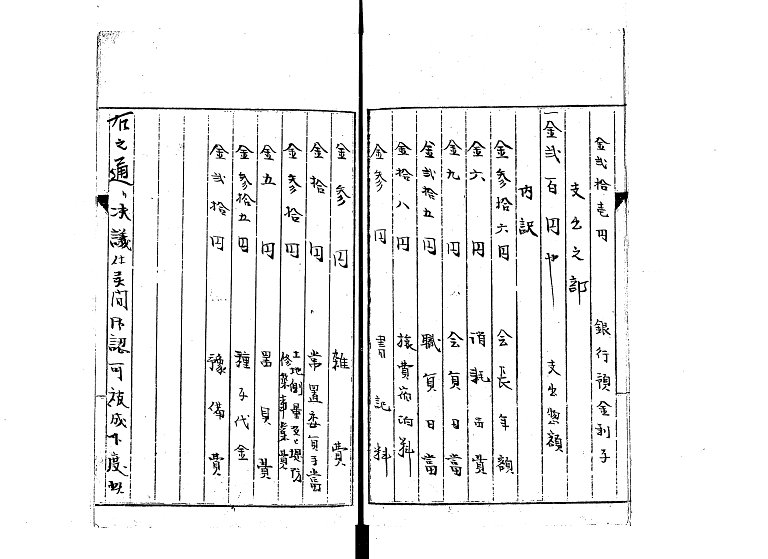 金弐拾壱円 銀行預金利子
支出之部
一金弐百円也 支出惣額
内訳
金参拾六円 会長年額
金六円 消耗品費
金九円 会員日当
金弐拾五円 職員日当
金拾八円 旅費宿泊料
金参円 書記料
金参円 雑費
金拾円 常置委員手当
金参拾円 土地測量及ヒ堤防修築事業費
金五円 器具費
金参拾五円 種子代金
金弐拾円 豫備費
右之通リ決議仕候間御認可被成下度